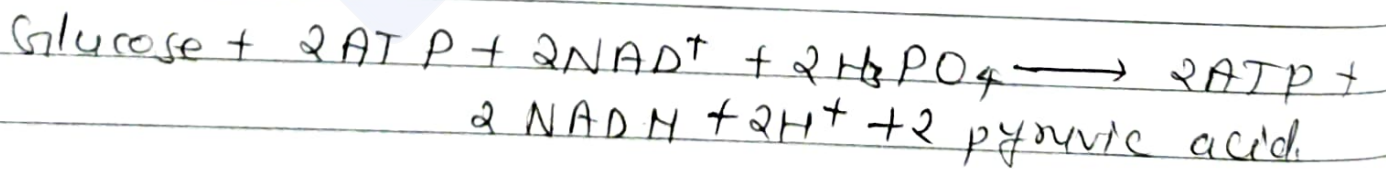 Glucose + 2ATP + 2NAD⁺ + 2H₃PO₄ ⟶ 2ATP +
2 NADH + 2H⁺ + 2 pyruvic acid.